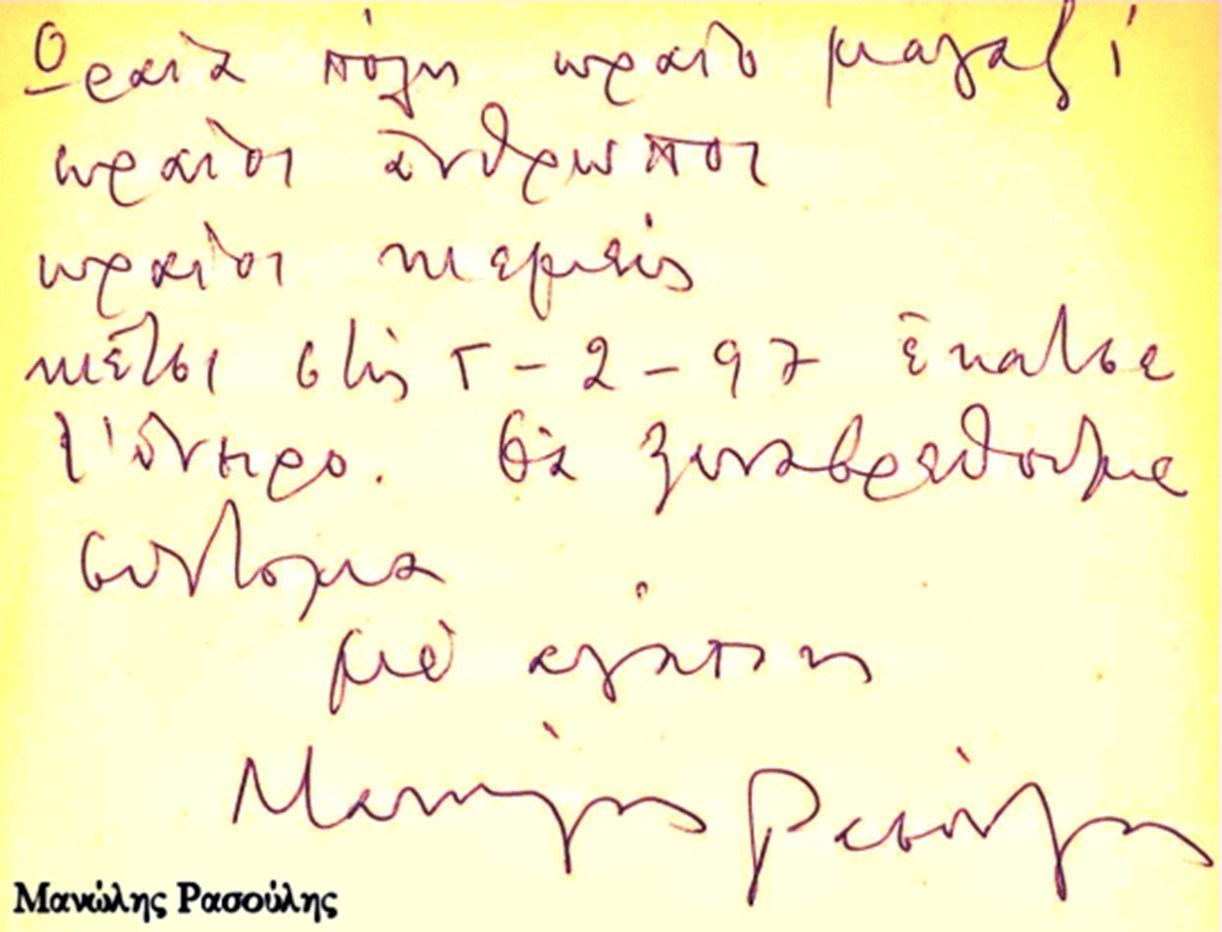 Ωραία πόλη ωραίο μαγαζί
ωραίοι άνθρωποι
ωραίοι κι εμείς
κι έτσι στις 5-2-97 έκατσε
τ' όνειρο. Θα ξαναβρεθούμε
σύντομα
με αγάπη
Μανώλης Ρασούλης
Μανώλης Ρασούλης